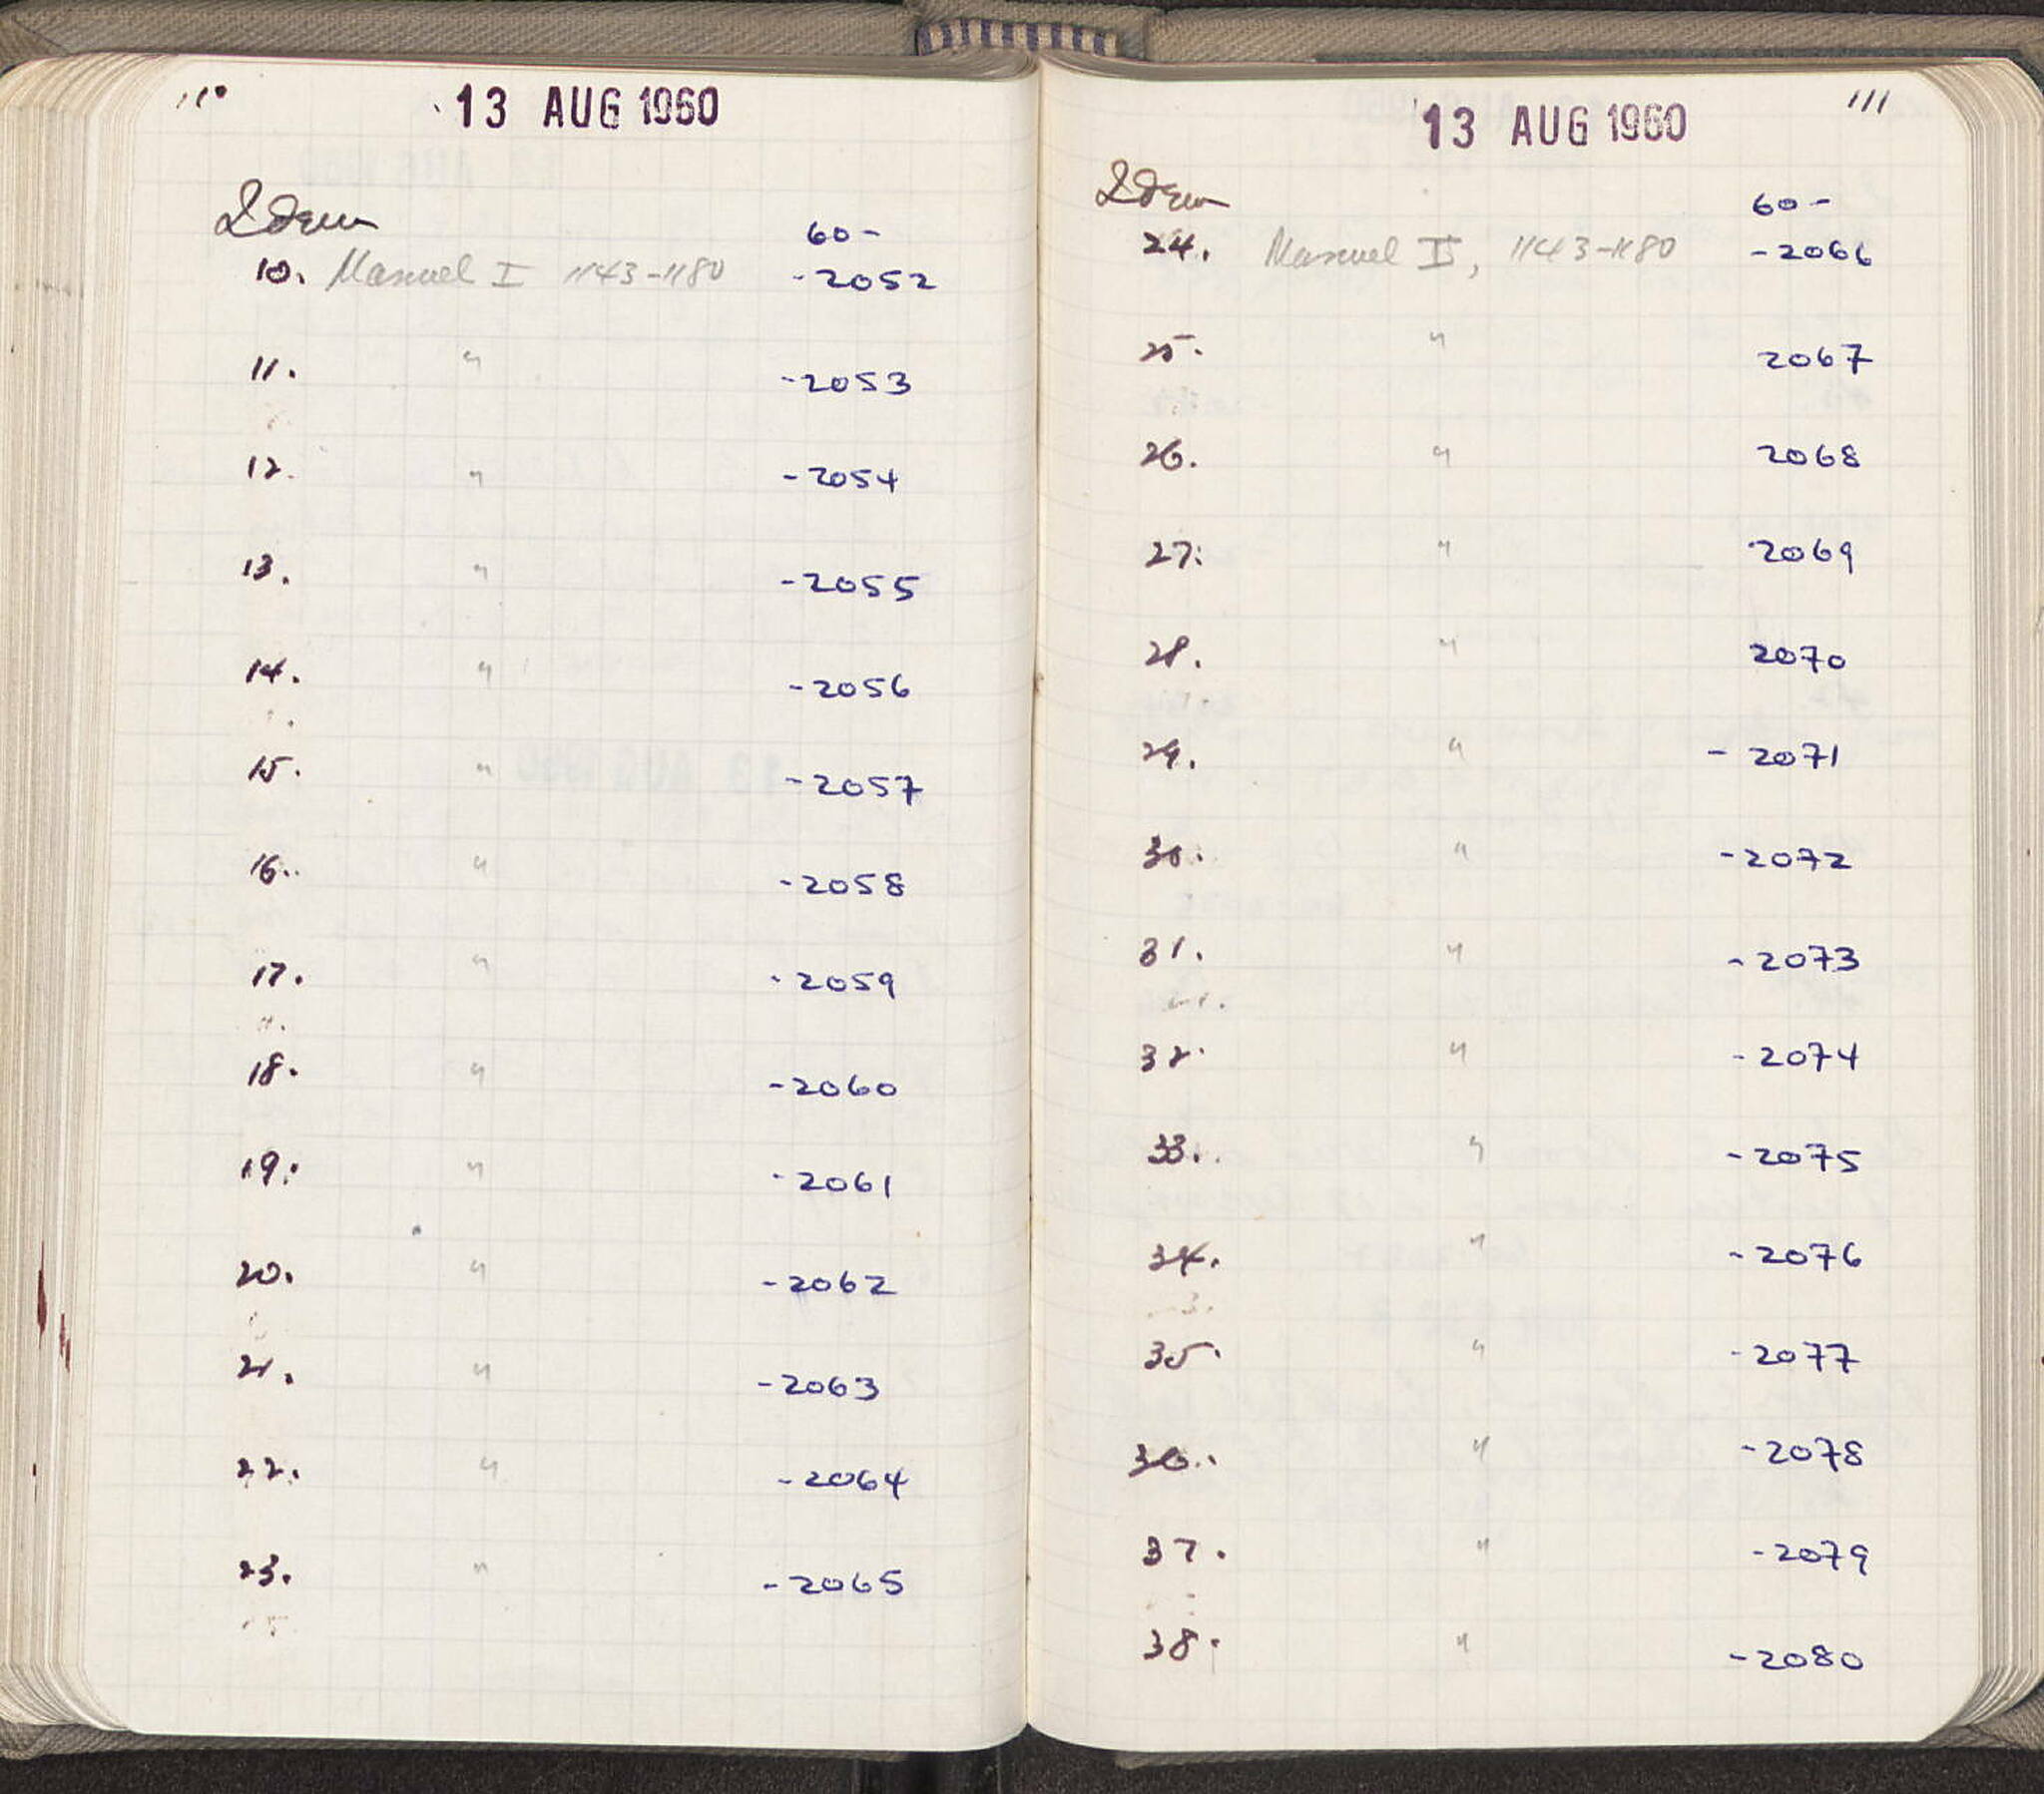 110
13 AUG 1960
Idem
60-
10. Manuel I 1143-1180 -2052
11. " -2053
12. " -2054
13. " -2055
14. " -2056
15. " -2057
16. " -2058
17. " -2059
18. " -2060
19. " -2061
20. " -2062
21. " -2063
22. " -2064
23. " -2065
111
13 AUG 1960
Idem
60-
24. Manuel I, 1143-1180 -2066
25. " 2067
26. " 2068
27. " 2069
28. " 2070
29. " -2071
30. " -2072
31. " -2073
32. " -2074
33. " -2075
34. " -2076
35. " -2077
36. " -2078
37. " -2079
38. " -2080